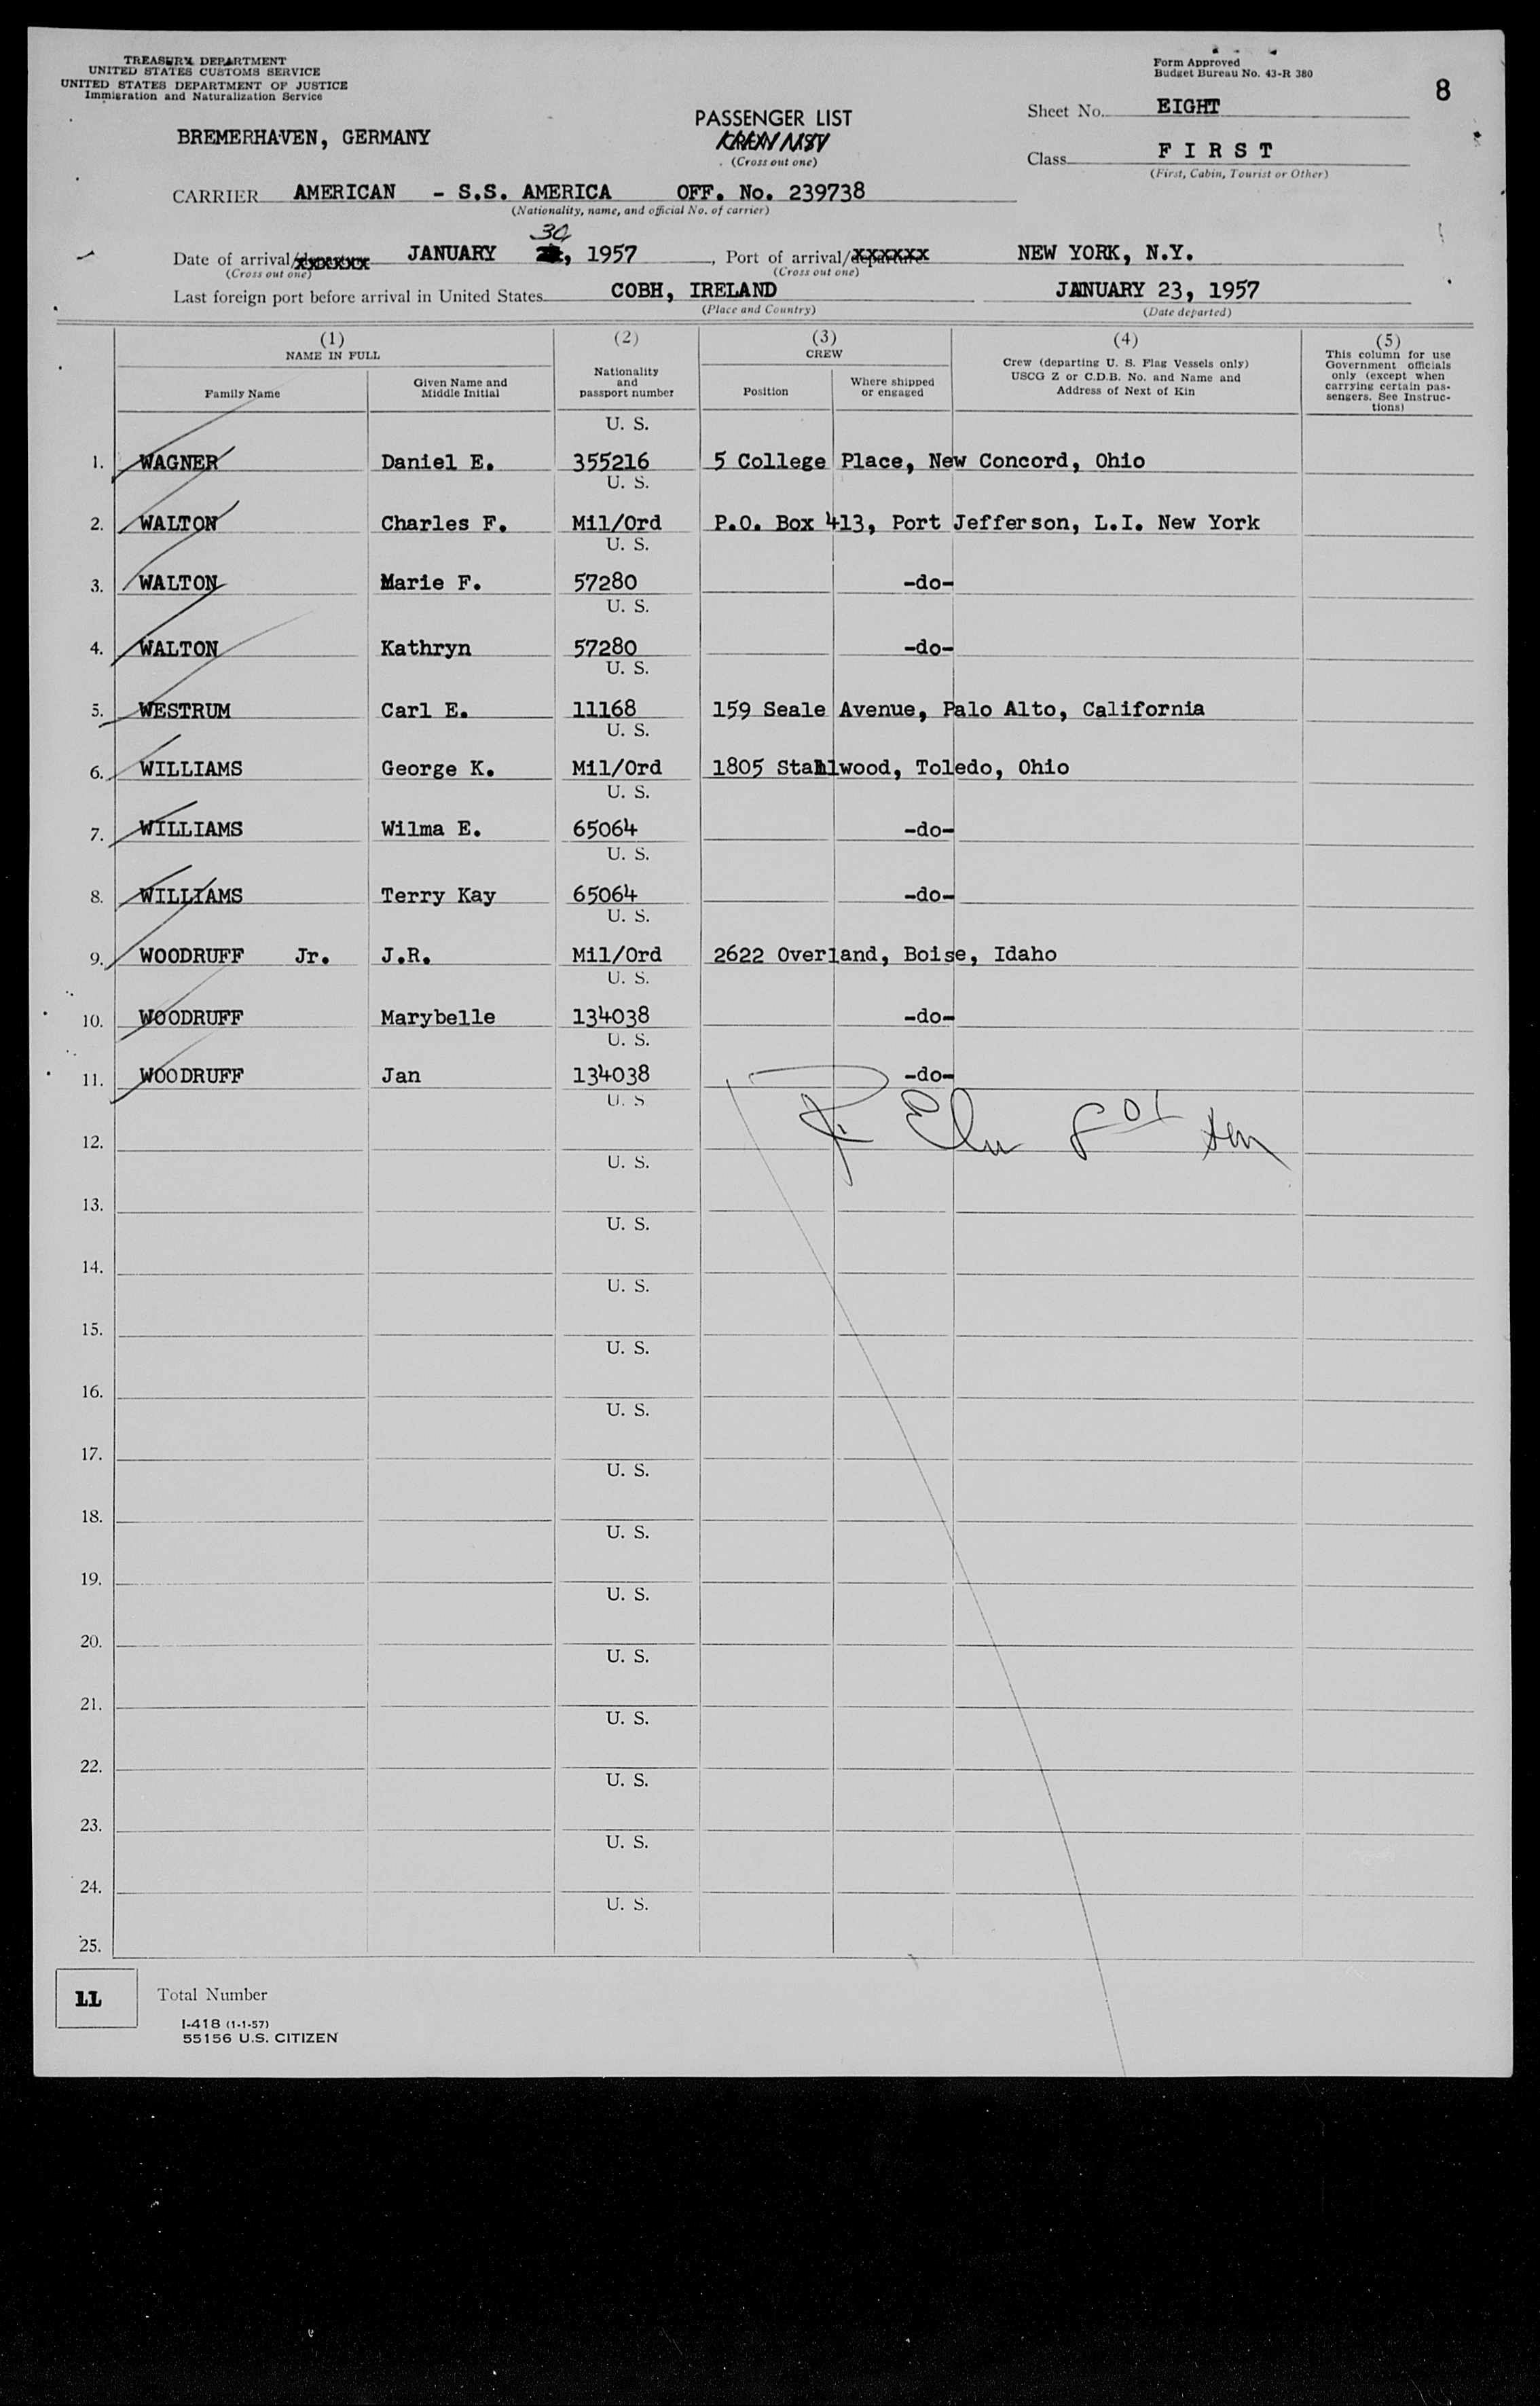 TREASURY DEPARTMENT
UNITED STATES CUSTOMS SERVICE
UNITED STATES DEPARTMENT OF JUSTICE
Immigration and Naturalization Service
Form Approved
Budget Bureau No. 43-R 380
8
BREMERHAVEN, GERMANY
PASSENGER LIST
(Cross out one)
Sheet No. EIGHT
Class F I R S T
(First, Cabin, Tourist or Other)
CARRIER AMERICAN - S.S. AMERICA OFF. No. 239738
(Nationality, name, and official No. of carrier)
Date of arrival/ JANUARY 30, 1957, Port of arrival/departure NEW YORK, N.Y.
(Cross out one) (Cross out one)
Last foreign port before arrival in United States COBH, IRELAND JANUARY 23, 1957
(Place and Country) (Date departed)
(1) (2) (3) (4) (5)
NAME IN FULL
Family Name
Given Name and Middle Initial
Nationality and passport number
CREW
Position
Where shipped or engaged
Crew (departing U. S. Flag Vessels only)
USCG Z or C.D.B. No. and Name and
Address of Next of Kin
This column for use
Government officials
only (except when
carrying certain pas-
sengers. See Instruc-
tions)
U. S.
1. WAGNER Daniel E. 355216 5 College Place, New Concord, Ohio
U. S.
2. WALTON Charles F. Mil/Ord P.O. Box 413, Port Jefferson, L.I. New York
U. S.
3. WALTON Marie F. 57280 -do-
U. S.
4. WALTON Kathryn 57280 -do-
U. S.
5. WESTRUM Carl E. 11168 159 Seale Avenue, Palo Alto, California
U. S.
6. WILLIAMS George K. Mil/Ord 1805 Stahlwood, Toledo, Ohio
U. S.
7. WILLIAMS Wilma E. 65064 -do-
U. S.
8. WILLIAMS Terry Kay 65064 -do-
U. S.
9. WOODRUFF Jr. J.R. Mil/Ord 2622 Overland, Boise, Idaho
U. S.
10. WOODRUFF Marybelle 134038 -do-
U. S.
11. WOODRUFF Jan 134038 -do-
U. S
12.
U. S.
13.
U. S.
14.
U. S.
15.
U. S.
16.
U. S.
17.
U. S.
18.
U. S.
19.
U. S.
20.
U. S.
21.
U. S.
22.
U. S.
23.
U. S.
24.
U. S.
25.
11 Total Number
I-418 (1-1-57)
55156 U.S. CITIZEN